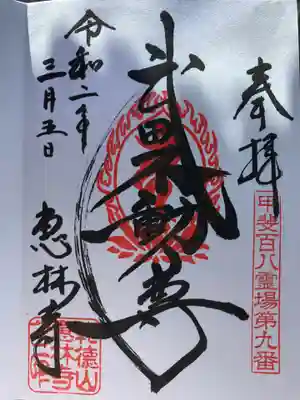 奉拝
甲斐百八霊場第九番
武田不動尊
令和二年
三月五日
恵林寺
乾徳山
恵林寺